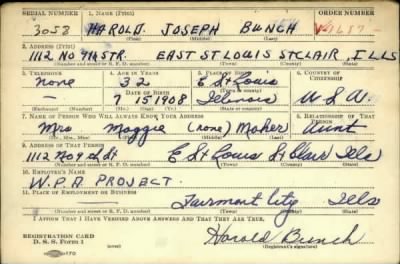 SERIAL NUMBER 1. NAME (Print) ORDER NUMBER
3058 HAROLD JOSEPH BUNCH
(First) (Middle) (Last)
2. ADDRESS (Print)
1112 NO 9th STR. EAST ST LOUIS ST CLAIR, ILLS
(Number and street or R. F. D. number) (Town) (County) (State)
3. TELEPHONE 4. AGE IN YEARS 5. PLACE OF BIRTH 6. COUNTRY OF CITIZENSHIP
none 32 E St Louis
DATE OF BIRTH
15 1908 Illinois U.S.A.
(Exchange) (Number) (Mo.) (Day) (Yr.) (State or country)
7. NAME OF PERSON WHO WILL ALWAYS KNOW YOUR ADDRESS 8. RELATIONSHIP OF THAT PERSON
Mrs Maggie (none) Maher Aunt
(Mr., Mrs., Miss) (First) (Middle) (Last)
9. ADDRESS OF THAT PERSON
1112 No 9th St E St Louis St Clair Ills
(Number and street or R. F. D. number) (Town) (County) (State)
10. EMPLOYER'S NAME
W.P.A. PROJECT.
11. PLACE OF EMPLOYMENT OR BUSINESS
Fairmont City Ills
(Number and street or R. F. D. number) (Town) (County) (State)
I AFFIRM THAT I HAVE VERIFIED ABOVE ANSWERS AND THAT THEY ARE TRUE.
REGISTRATION CARD
D. S. S. Form 1 Harold Bunch
(Registrant's signature)